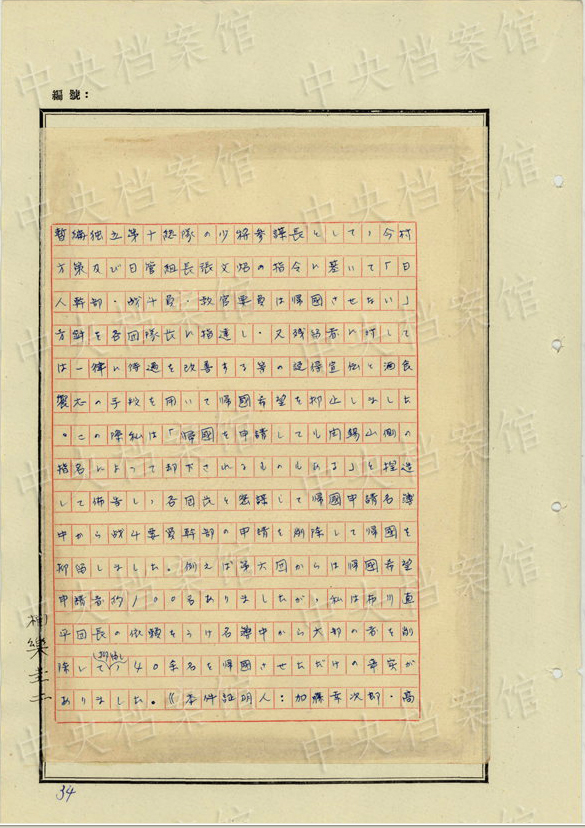 編號：
暫編独立第十総隊の少将参謀長として，今村
方策及び日管組長張文焔の指令に基いて「日
人幹部・戦斗員・教官要員は帰國させない」
方針を各団隊長に指達し・又残留者に対して
は一律に待遇を改善する等の宣伝と酒食
の手段を用いて帰國希望を抑止しました
。この際私は「帰國を申請しても閻錫山側の
指名によって却下されるものもある」と捏造
して佈告し，各団長と密謀して帰國申請名簿
中から戦斗要員幹部の申請を削除して帰國を
抑留しました。例えば第六団からは帰國希望
申請者約100名ありましたが，私は布川直
平団長の依頼をうけ名簿中から大部の者を削
除して抑留し，40余名を帰國させただけの事実が
ありました。《本件証明人：加藤幸次郎・高
相樂圭二
34
中央档案馆